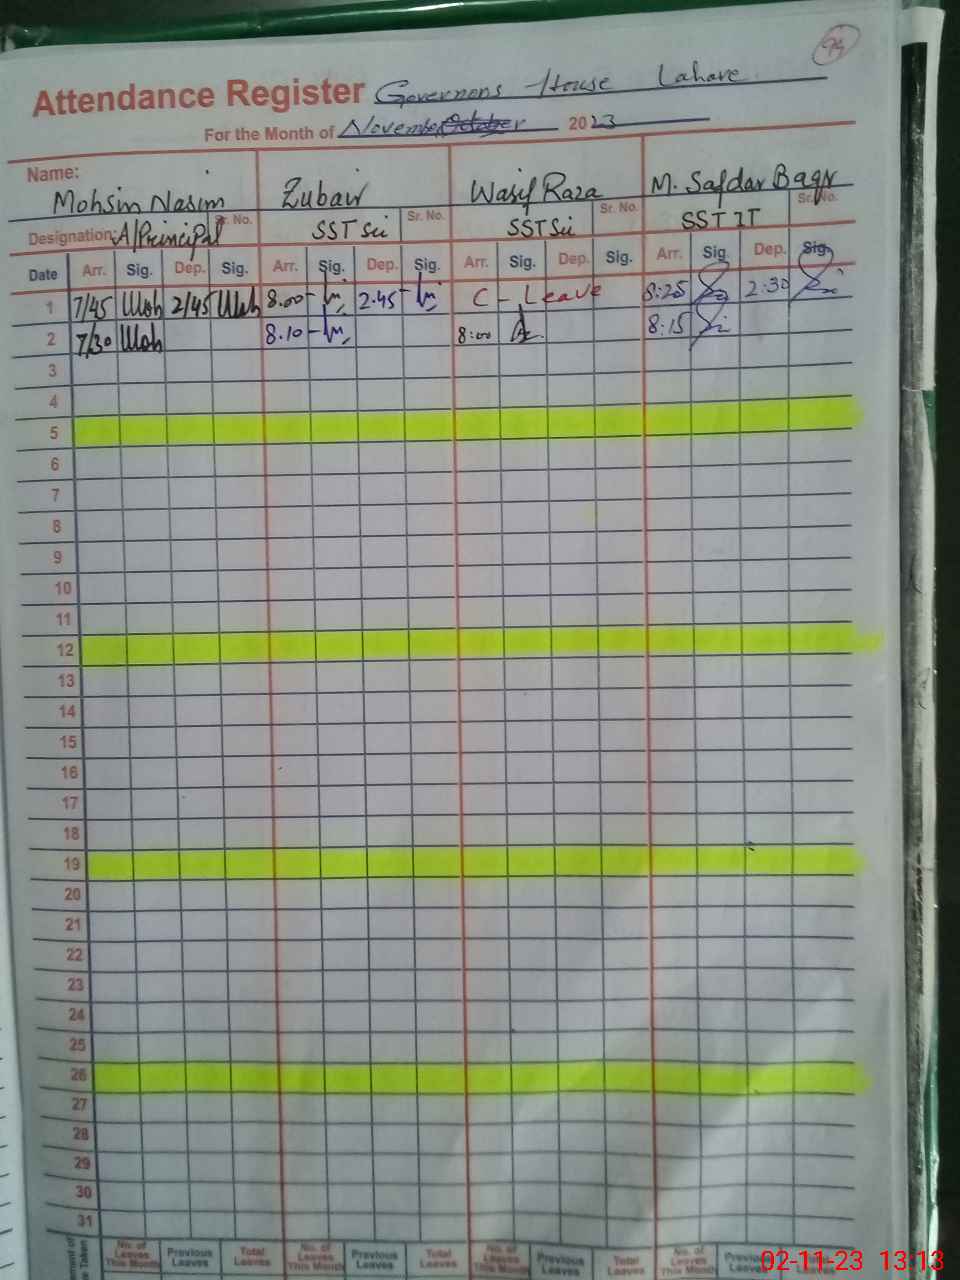 94
Attendance Register Governens House Lahore
For the Month of November 2023
Name: Mohsin Nasim Zubair Wasif Raza M. Safdar Baqr
Designation: A/Principal Sr. No. SST Sci Sr. No. SST Sci Sr. No. SST IT Sr. No.
Date Arr. Sig. Dep. Sig. Arr. Sig. Dep. Sig. Arr. Sig. Dep. Sig. Arr. Sig. Dep. Sig.
1 7/45 Moh 2/45 Moh 8.00 2.45 C - Leave 8:25 2:30
2 7/30 Moh 8.10 8:00 8:15
3
4
5
6
7
8
9
10
11
12
13
14
15
16
17
18
19
20
21
22
23
24
25
26
27
28
29
30
31
No. of Leaves This Month Previous Leaves Total Leaves No. of Leaves This Month Previous Leaves Total Leaves No. of Leaves This Month Previous Leaves Total Leaves No. of Leaves This Month
02-11-23 13:13